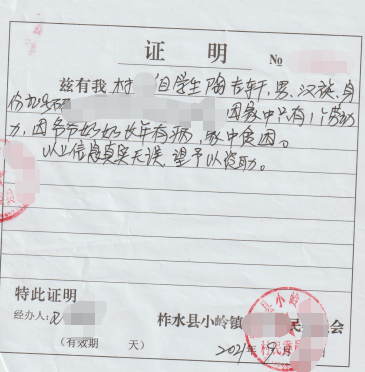 证 明
№
兹有我村 组学生陶吉轩,男,汉族,身
份证号码 因家中只有1个劳动
力,因爷爷奶奶长年有病,家中贫困。
以上信息真实无误 望予以资助。
特此证明
经办人:
柞水县小岭镇 民 会
(有效期 天)
2021年9月
县小岭